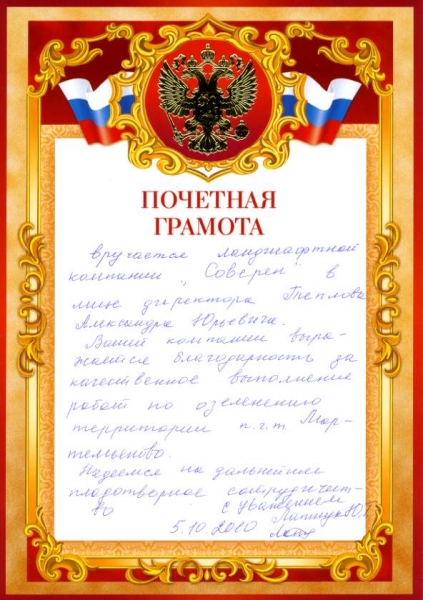 ПОЧЕТНАЯ
ГРАМОТА
вручается ландшафтной
компании „Соверен" в
лице директора Теплова
Александра Юрьевича.
Вашей компании выра-
жается благодарность за
качественное выполнение
работ по озеленению
территории п.г.т. Мар-
темьяново.
Надеемся на дальнейшее
плодотворное сотрудничест-
во
с уважением
5.10.2010